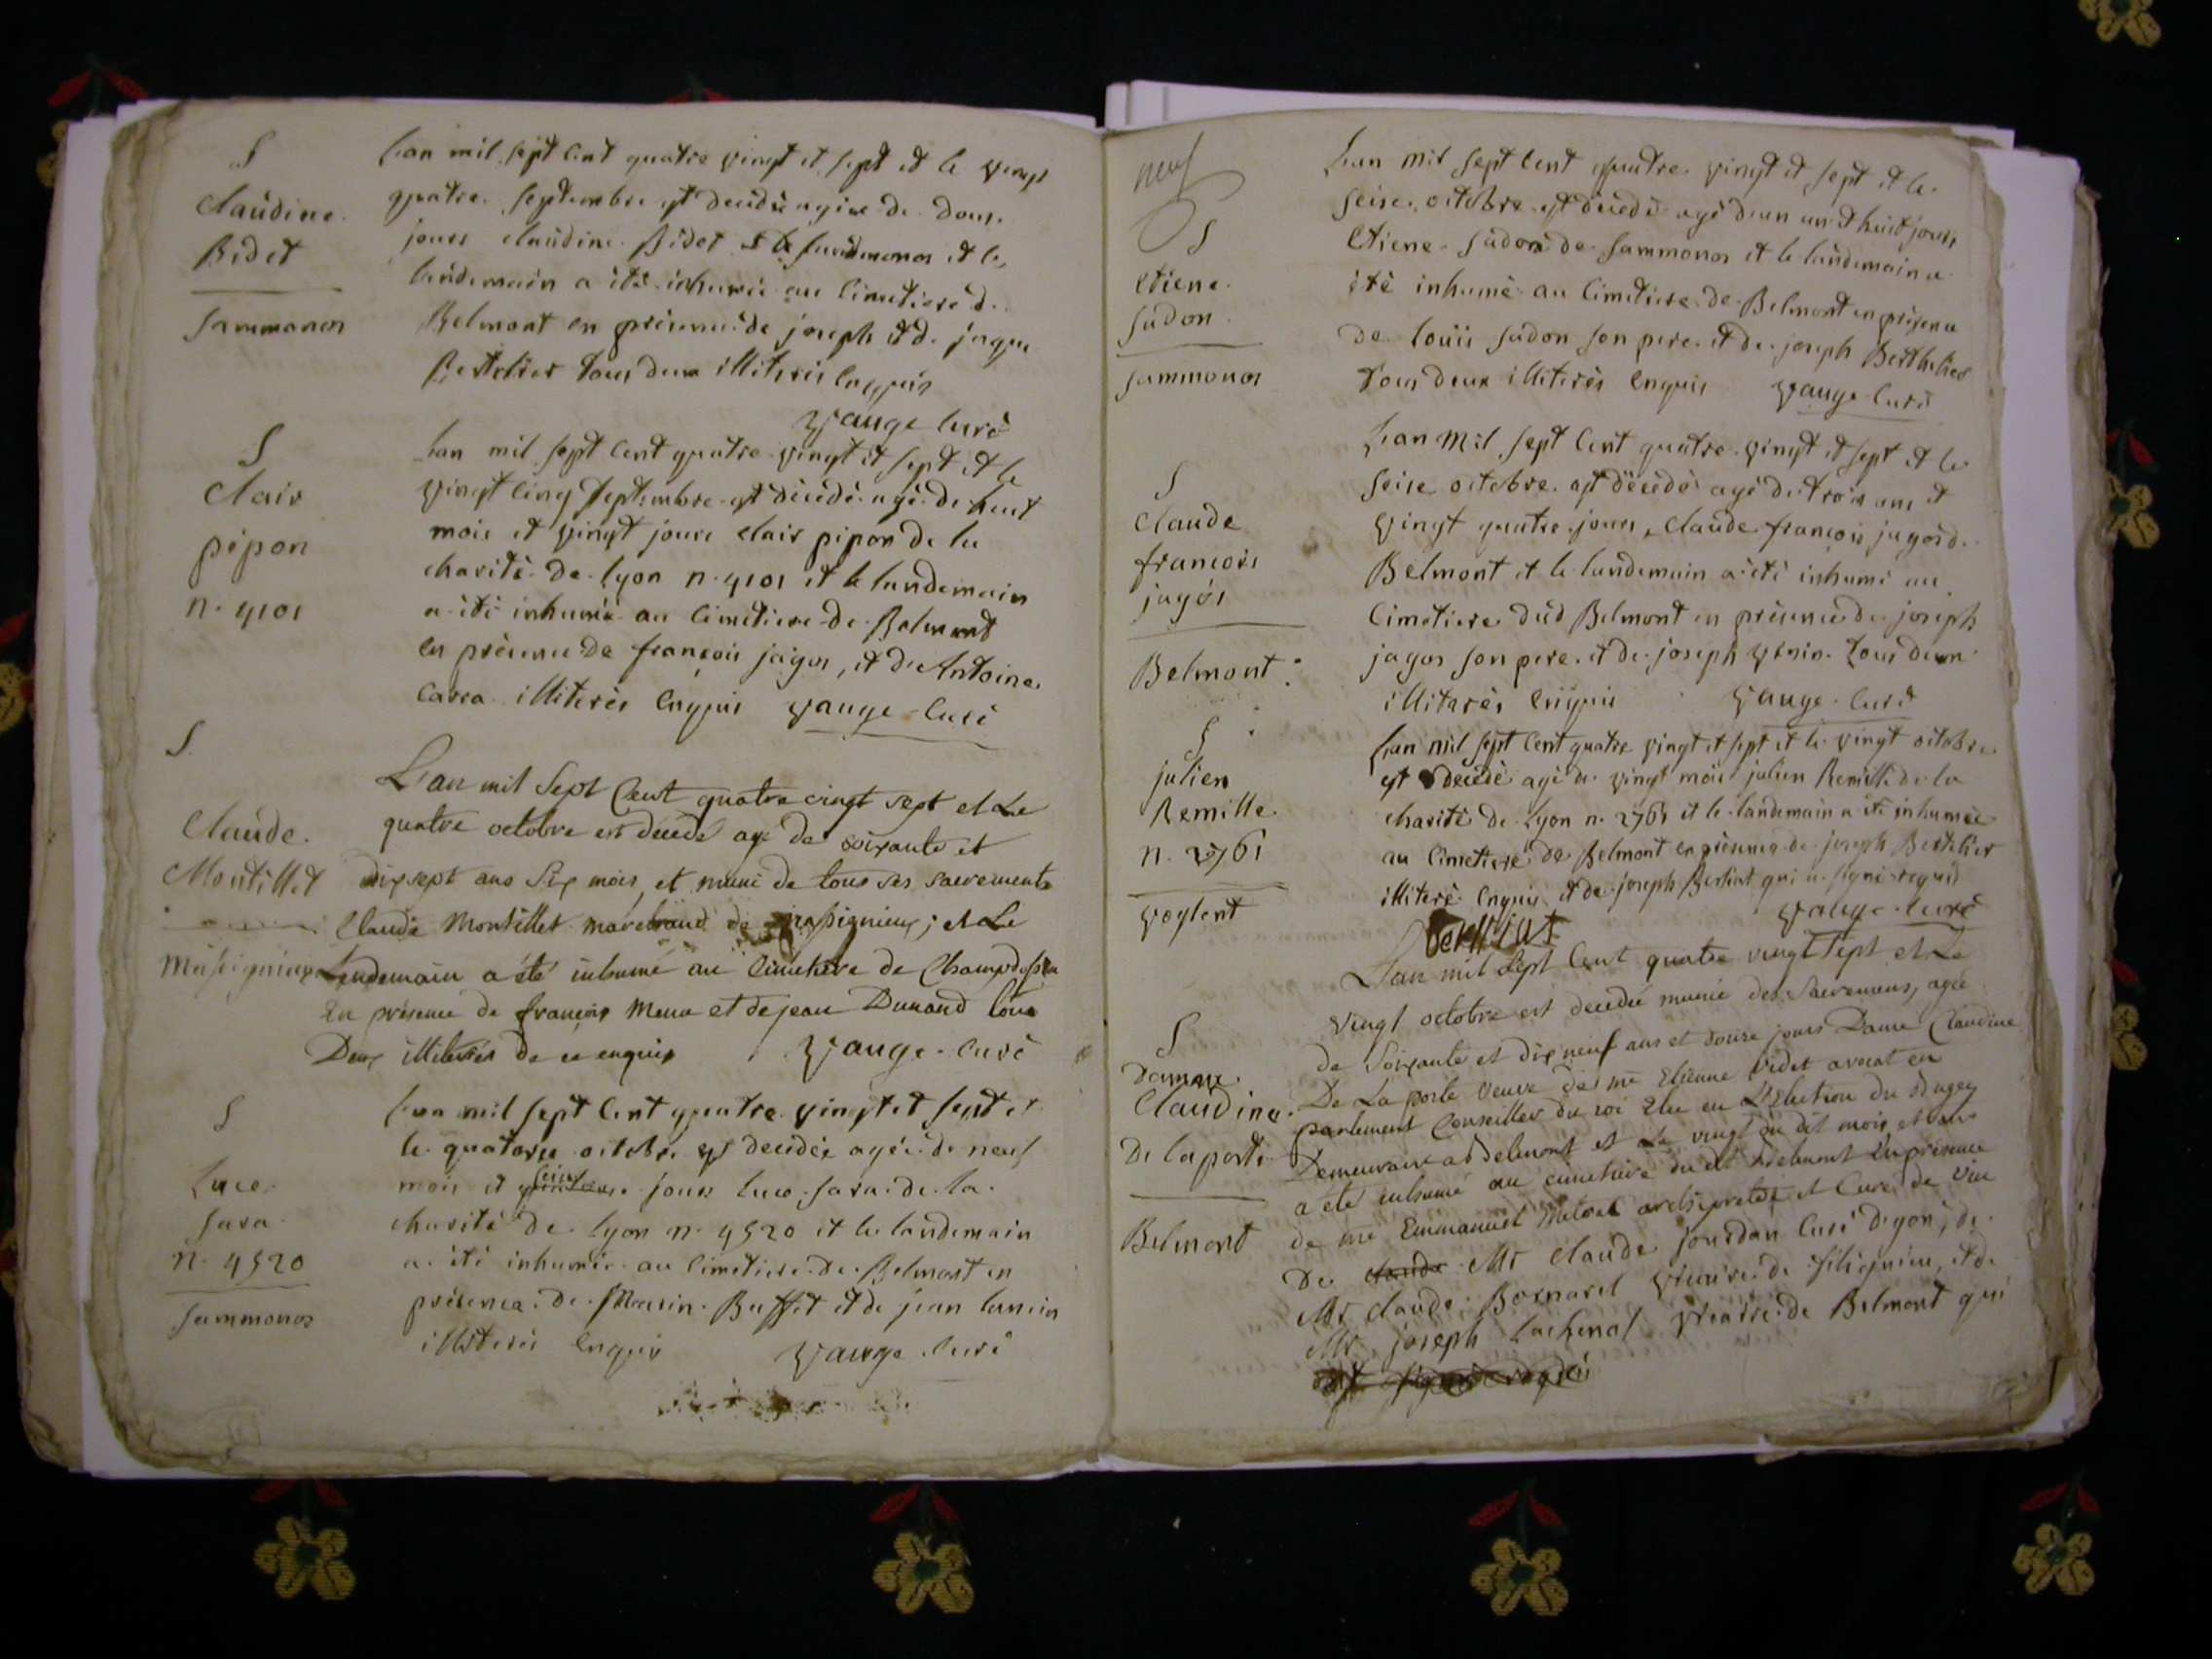 S
Claudine
Bidet
Sammonos
Lan mil sept cent quatre vingt et sept et le vingt
quatre septembre est decedée agée de douse
jours claudine Bidet de Sammonos et le
lendemain a été inhumée au cimetiere de
Belmont en présence de joseph et de jaque
Bertelier tous deux illiterés enquis
Vauge curé
S
Clair
pipon
n. 4101
Lan mil sept cent quatre vingt et sept et le
vingt cinq septembre est décédé agé de huit
mois et vingt jours clair pipon de la
charité de lyon n. 4101 et le landemain
a été inhumé au cimetiere de Belmont
en présence de françois jagos, et d'Antoine
Carra illiterés enquis Vauge curé
S
Claude
Montillet
Masignieux
L'an mil Sept Cent quatre vingt sept et Le
quatre octobre est decedé agé de soixante et
dixsept ans Six mois, et muni de tous ses sacrements
Claude Montillet marchand de massignieux; et Le
Lendemain a été inhumé au Cimetiere de Champdossin
En présence de françois Meux et de jean Dunand tous
Deux illiterés de ce enquis Vauge curé
S
Luce
Sara
n. 4520
Sammonos
Lan mil sept cent quatre vingt et sept et
le quatorse octobre est decedée agée de neuf
mois et seise jours luce Sara de la
charité de lyon n. 4520 et le landemain
a été inhumée au cimetiere de Belmont en
présence de Marin Buffet et de jean
illiterés enquis Vauge curé
neuf
S
Etiene
Sudon
Sammonos
Lan mil sept cent quatre vingt et sept et le
seise octobre est décédé agé d'un an et huit jours
Etiene Sudon de Sammonos et le landemain a
été inhumé au cimetiere de Belmont en présence
de louis Sudon son pere et de joseph Berthelier
tous deux illiterés enquis Vauge curé
S
Claude
françois
jagos
Belmont
Lan mil sept cent quatre vingt et sept et le
seise octobre est décédé agé de trois ans et
vingt quatre jours, claude françois jagos de
Belmont et le landemain a été inhumé au
cimetiere dud Belmont en présence de joseph
jagos son pere et de joseph Venin tous deux
illiterés enquis Vauge curé
S
julien
Remille
n. 2761
Voglent
Lan mil sept cent quatre vingt et sept et le vingt octobre
est decedé agé de vingt mois julien Remille de la
charité de Lyon n. 2761 et le landemain a été inhumée
au cimetiere de Belmont en présence de joseph Bertelier
illiteré enquis et de joseph Berliat qui a signé requis
Berlliat Vauge curé
S
Damme
Claudine
De laporte
Belmont
L'an mil Sept Cent quatre vingt sept et Le
vingt octobre est decedée munie des Sacremens, agée
de Soixante et dix neuf ans et douze jours Dame Claudine
De La porte veuve de me Etienne Videt avocat en
parlement Conseiller du roi Elu en L'Election du Bugey
Demeurant a Belmont et Le vingt du dit mois et an
a été inhumé au cimetiere du dit Belmont En présence
de me Emmanuel archiprêtre et Curé de Viu
De claude Mr claude jourdan Curé d'yon, de
Mr claude Bornarel Vicaire de Silignieu, et de
Mr joseph Lachenal Vicaire de Belmont qui
ont signé requis